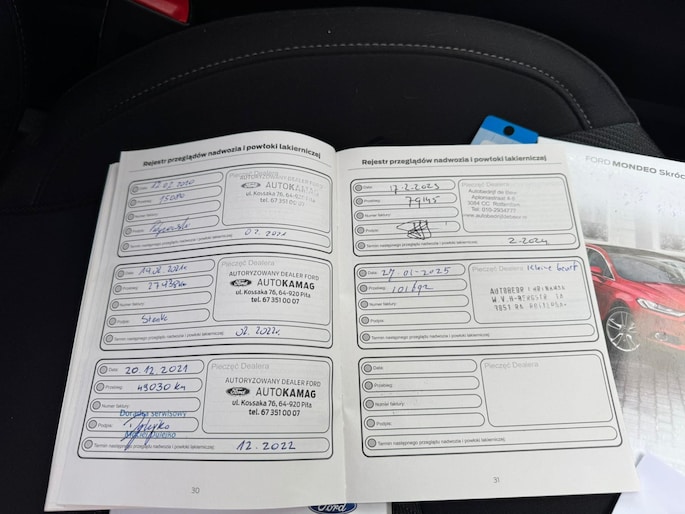 Rejestr przeglądów nadwozia i powłoki lakierniczej
Data: 12.02.2020
Pieczęć Dealera
AUTORYZOWANY DEALER FORD
Ford AUTOKAMAG
ul. Kossaka 76, 64-920 Piła
tel. 67 351 00 07
Przebieg:
Numer faktury:
Podpis:
Termin następnego przeglądu nadwozia i powłoki lakierniczej 02.2021
Data: 19.01.2021r.
Pieczęć Dealera
AUTORYZOWANY DEALER FORD
Ford AUTOKAMAG
ul. Kossaka 76, 64-920 Piła
tel. 67 351 00 07
Przebieg:
Numer faktury:
Podpis:
Termin następnego przeglądu nadwozia i powłoki lakierniczej 02.2022r.
Data: 20.12.2021
Pieczęć Dealera
AUTORYZOWANY DEALER FORD
Ford AUTOKAMAG
ul. Kossaka 76, 64-920 Piła
tel. 67 351 00 07
Przebieg: 49030 km
Numer faktury:
Doradca serwisowy
Podpis:
Termin następnego przeglądu nadwozia i powłoki lakierniczej 12.2022
30
Rejestr przeglądów nadwozia i powłoki lakierniczej
Data: 17-2-2023
Pieczęć Dealera
Autobedrijf de Beer
Przebieg: 79145
Rotterdam
Numer faktury:
Podpis:
Termin następnego przeglądu nadwozia i powłoki lakierniczej 2-2024
Data: 27-01-2025
Pieczęć Dealera Kleine beurt
Przebieg:
Numer faktury:
Podpis:
Termin następnego przeglądu nadwozia i powłoki lakierniczej
Data:
Pieczęć Dealera
Przebieg:
Numer faktury:
Podpis:
Termin następnego przeglądu nadwozia i powłoki lakierniczej
31
FORD MONDEO
Ford